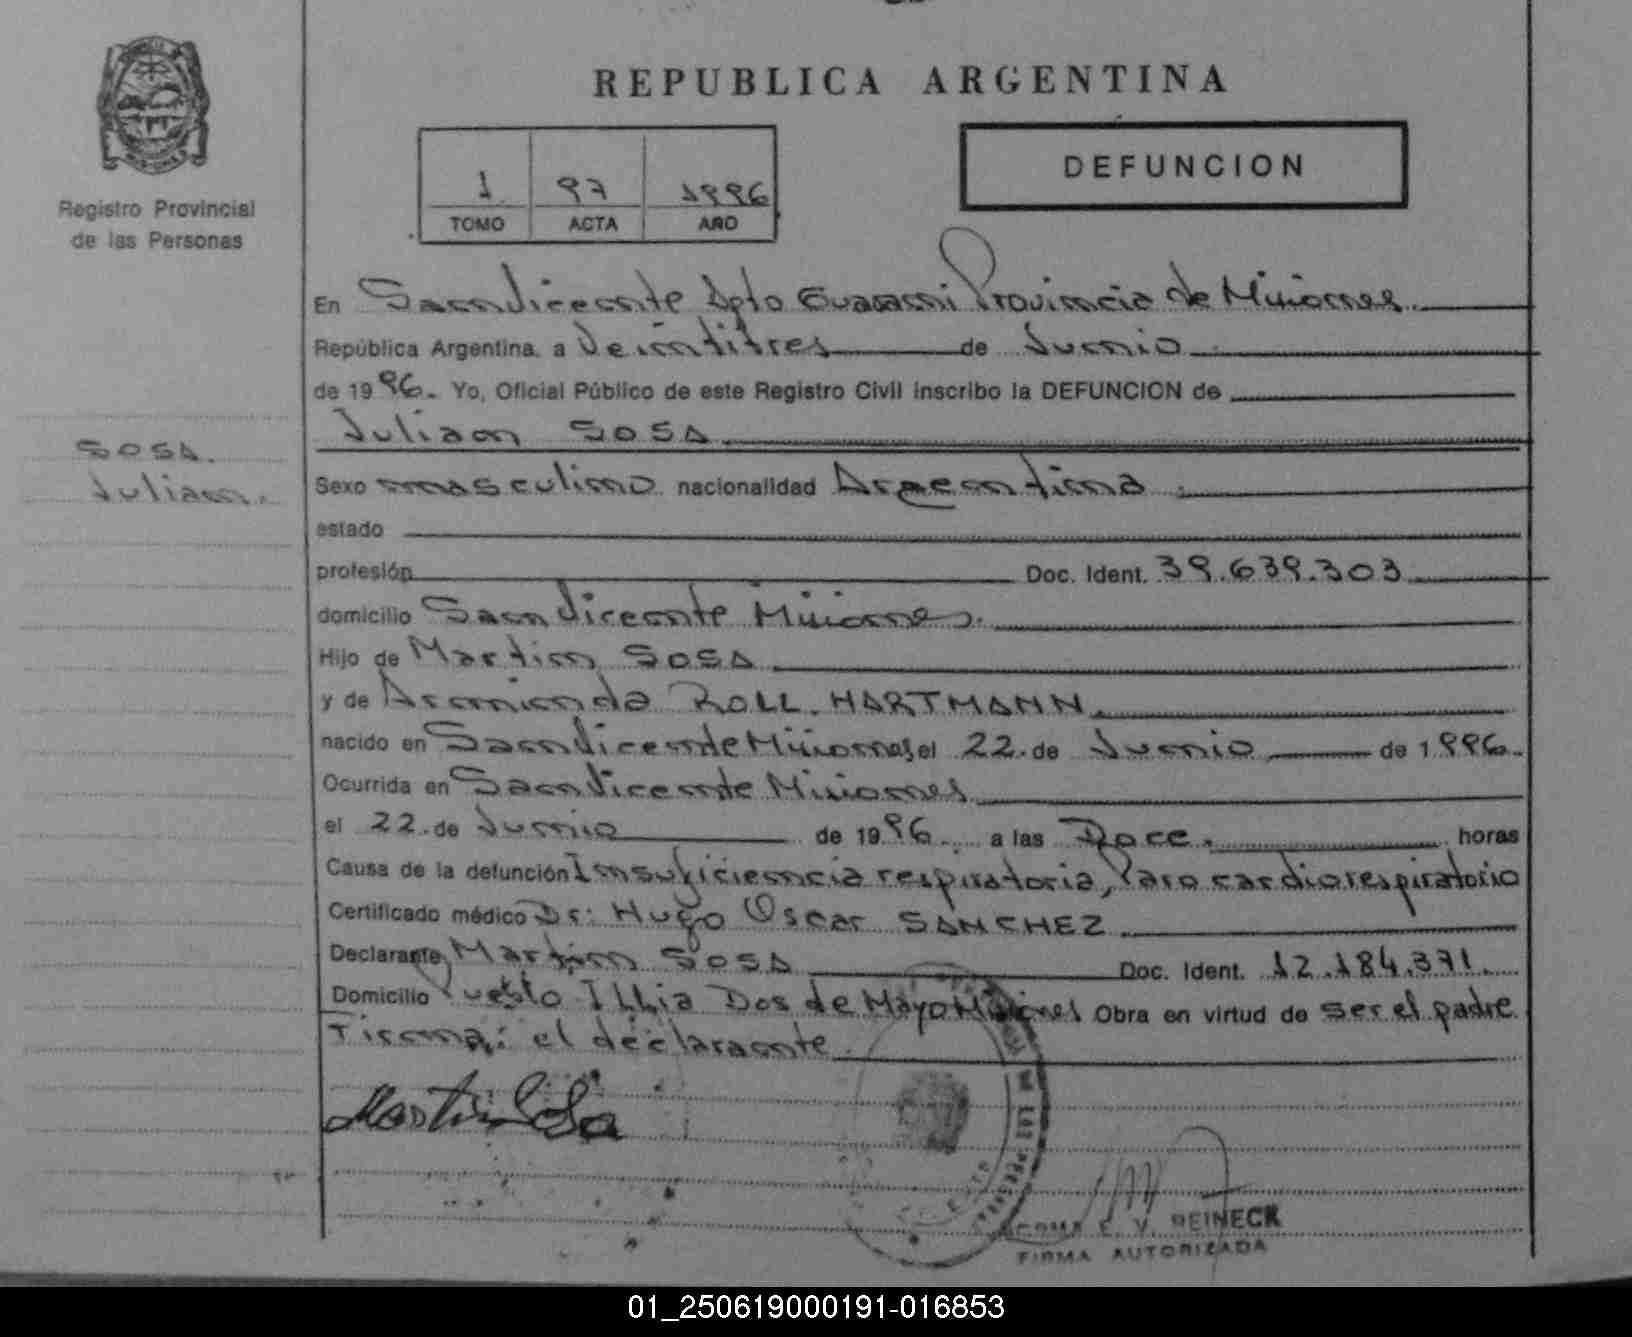 REPUBLICA ARGENTINA
DEFUNCION
1 97 1996
TOMO ACTA AÑO
Registro Provincial
de las Personas
SOSA.
Julian.
En San Vicente Dpto Guarani Provincia de Misiones.
República Argentina, a Veintitres de Junio
de 1996. Yo, Oficial Público de este Registro Civil inscribo la DEFUNCION de
Julian SOSA
Sexo masculino nacionalidad Argentina
estado
profesión Doc. Ident. 39.639.303
domicilio San Vicente Misiones.
Hijo de Martin SOSA
y de Arminda ROLL. HARTMANN
nacido en San Vicente Misiones el 22. de Junio de 1996.
Ocurrida en San Vicente Misiones
el 22. de Junio de 1996. a las Doce. horas
Causa de la defunción Insuficiencia respiratoria, Paro cardiorespiratorio
Certificado médico Dr: Hugo Oscar SANCHEZ
Declarante Martin SOSA Doc. Ident. 12.184.371.
Domicilio Pueblo ILLia Dos de Mayo Misiones Obra en virtud de ser el padre
Firma: el declarante
Martin Sosa
DE LAS PERSONAS
E. V. REINECK
FIRMA AUTORIZADA
01_250619000191-016853